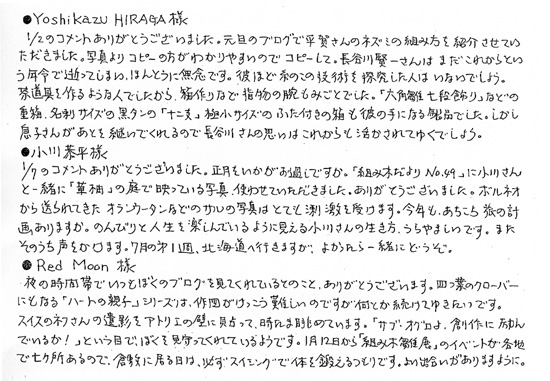 ●Yoshikazu HIRAGA 様
1/2のコメントありがとうございました。元旦のブログで平賀さんのネズミの組み方を紹介させてい
ただきました。写真よりコピーの方がわかりやすいのでコピーして。長谷川賢一さんは まだこれからとい
う年令で逝ってしまい、ほんとうに無念です。彼ほど糸のこの技術を探究した人は いないでしょう。
茶道具を作るような人でしたから、箱作りなど指物の腕もみごとでした。「六角雛七段飾り」などの
重箱、名刺サイズの黒タンの「十二支」極小サイズのふた付きの箱も彼の手になる製品でした。しかし
息子さんがあとを継いでくれるので長谷川さんの思いはこれからも活かされてゆくでしょう。
●小川恭平様
1/7のコメントありがとうございました。正月をいかがお過しですか。「組み木だよりNo.49」に小川さん
と一緒に「草柚」の庭で映っている写真、使わせていただきました。ありがとうございました。ボルネオ
から送られてきた オランウータンなどのサルの写真はとても刺激を受けます。今年も、あちこち旅の計
画ありますか。のんびりと人生を楽しんでいるように見える小川さんの生き方、うらやましいです。また
そのうち声をかけます。7月の第1週、北海道へ行きますが、よかったら一緒にどうぞ。
●Red Moon 様
夜の時間帯でいつもぼくのブログを見てくれているとのこと、ありがとうございます。四つ葉のクローバー
にもなる「ハートの親子」シリーズは、作図がけっこう難しいのですが何とか続けてゆきたいです。
スイスのネフさんの遺影をアトリエの壁に貼って、時たま眺めています。「サブ・オグロは、創作に励んで
でいるか!」という目で、ぼくを見守ってくれているようです。1月12日から「組み木雛展」のイベントが各地
で七ケ所あるので、倉敷に居る日は、必ずスイミングで体を鍛えるつもりです。よい出会いがありますように。